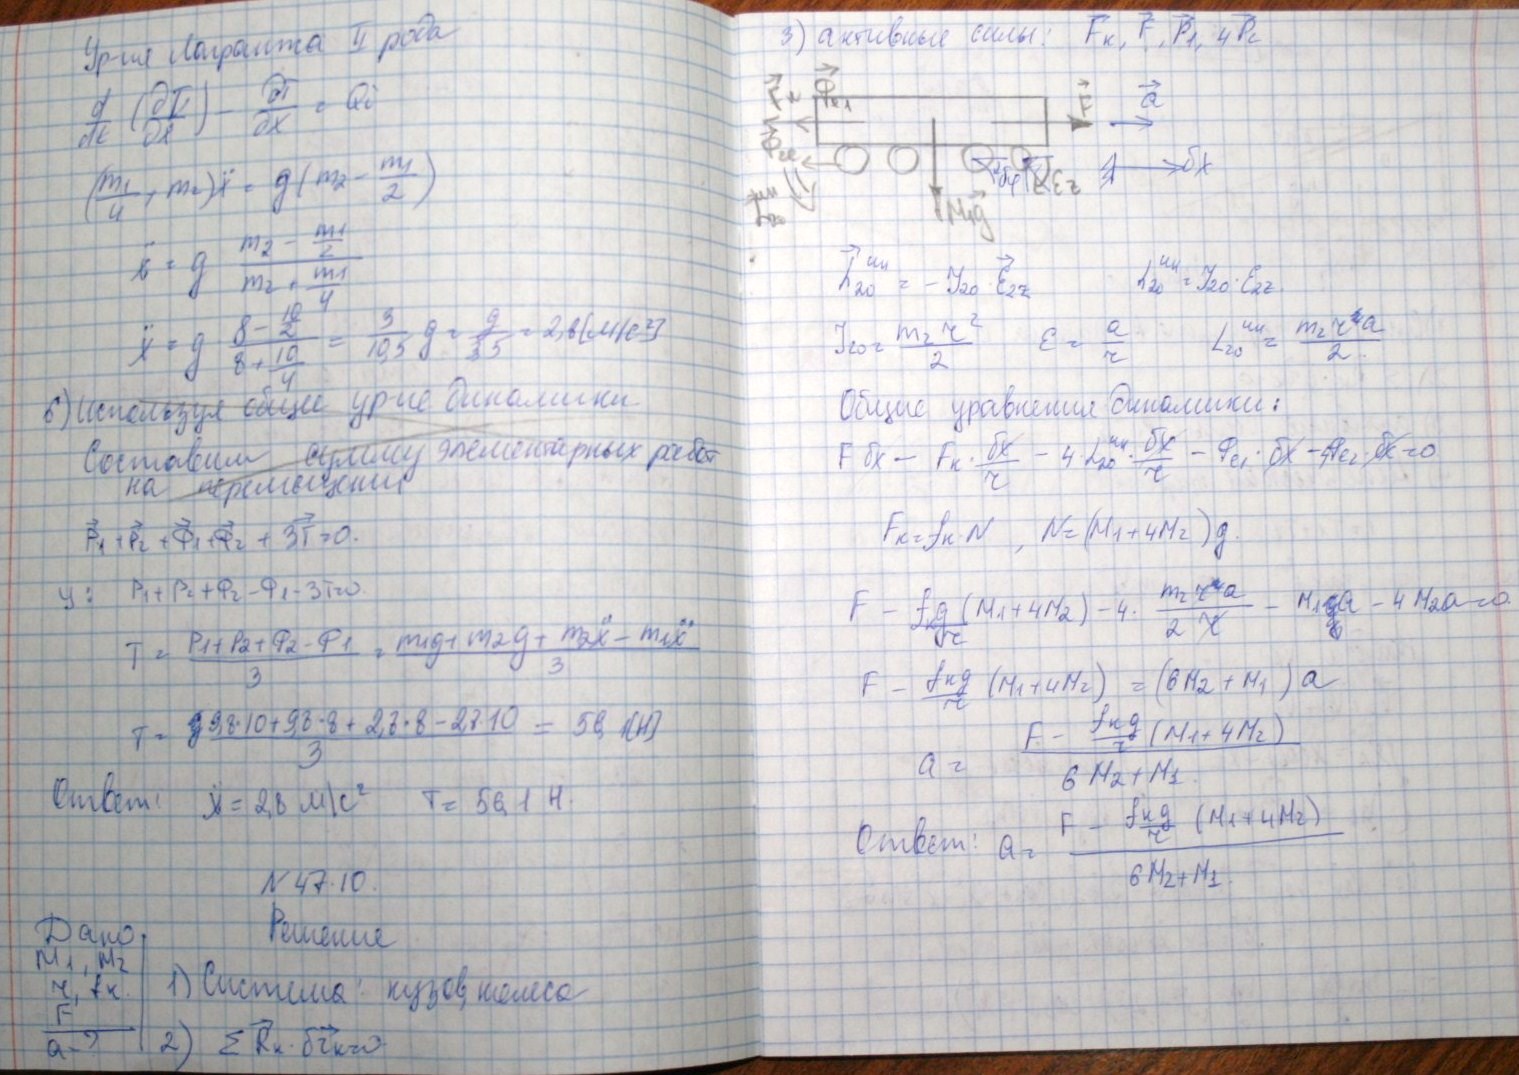 Ур-ия Лагранжа II рода
d/dt (∂T/∂ẋ) − ∂T/∂x = Qi
(m1/4 + m2)ẍ = g(m2 − m1/2)
ẍ = g (m2 − m1/2)/(m2 + m1/4)
ẍ = g (8 − 10/2)/(8 + 10/4) = 3/10,5 g = g/3,5 = 2,8 (м/с²)
б) Используя общие ур-ие динамики.
Составим сумму элементарных работ
на перемещении
P⃗1 + P⃗2 + Φ⃗1 + Φ⃗2 + 3T⃗ = 0.
y: P1 + P2 + Φ2 − Φ1 − 3T = 0
T = (P1 + P2 + Φ2 − Φ1)/3 = (m1g + m2g + m2ẍ − m1ẍ)/3
T = (9,8·10 + 9,8·8 + 2,8·8 − 2,8·10)/3 = 56,1(Н)
Ответ: ẍ = 2,8 м/с² T = 56,1 Н.
N 47.10.
Дано. Решение
M1, M2
r, fк.
F
a - ?
1) Система: кузов, колеса
2) Σ R⃗к · δr⃗к = 0
3) активные силы: F⃗к, F⃗, P⃗1, 4P⃗2
F⃗к Φ⃗e1 F⃗ a⃗
Φ⃗e2 δφ ε2z δx
L20 ин M1g⃗
L⃗20 ин = −J20 · ε⃗2z L20 ин = J20 · ε2z
J20 = m2r²/2 ε = a/r L20 ин = m2 r a/2.
Общие уравнения динамики:
F δx − Fк · δx/r − 4 L20 ин · δx/r − Φe1 · δx − 4Φe2 · δx = 0
Fк = fк · N , N = (M1 + 4M2)g.
F − fg/r (M1 + 4M2) − 4 · m2 r a/2 r − M1a − 4M2a = 0
F − fкg/r (M1 + 4M2) = (6M2 + M1) a
a = (F − fкg/r (M1 + 4M2))/(6M2 + M1.)
Ответ: a = (F − fкg/r (M1 + 4M2))/(6M2 + M1.)